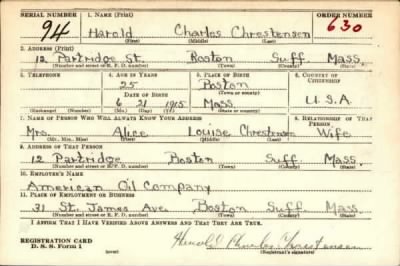 SERIAL NUMBER 1. NAME (Print) ORDER NUMBER
94 Harold Charles Chrestensen 630
(First) (Middle) (Last)
2. ADDRESS (Print)
12 Partridge St. Boston Suff. Mass.
(Number and street or R. F. D. number) (Town) (County) (State)
3. TELEPHONE 4. AGE IN YEARS 5. PLACE OF BIRTH 6. COUNTRY OF CITIZENSHIP
25 Boston
DATE OF BIRTH (Town or county)
6 21 1915 Mass. U.S.A.
(Exchange) (Number) (Mo.) (Day) (Yr.) (State or country)
7. NAME OF PERSON WHO WILL ALWAYS KNOW YOUR ADDRESS 8. RELATIONSHIP OF THAT PERSON
Mrs. Alice Louise Chrestensen Wife
(Mr., Mrs., Miss) (First) (Middle) (Last)
9. ADDRESS OF THAT PERSON
12 Partridge Boston Suff. Mass.
(Number and street or R. F. D. number) (Town) (County) (State)
10. EMPLOYER'S NAME
American Oil Company
11. PLACE OF EMPLOYMENT OR BUSINESS
31 St. James Ave. Boston Suff. Mass.
(Number and street or R. F. D. number) (Town) (County) (State)
I AFFIRM THAT I HAVE VERIFIED ABOVE ANSWERS AND THAT THEY ARE TRUE.
REGISTRATION CARD
D. S. S. Form 1 (over) Harold Charles Chrestensen
(Registrant's signature)